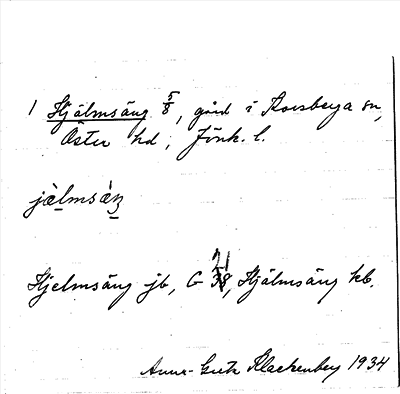 1 Hjälmsäng 5/8, gård i Korsberga sn,
Öster hd, Jönk. l.
jä̀lmsä̀ŋ
Hjelmsäng jb, G 21, Hjälmsäng kb.
Anna-Greta Klackenberg 1934